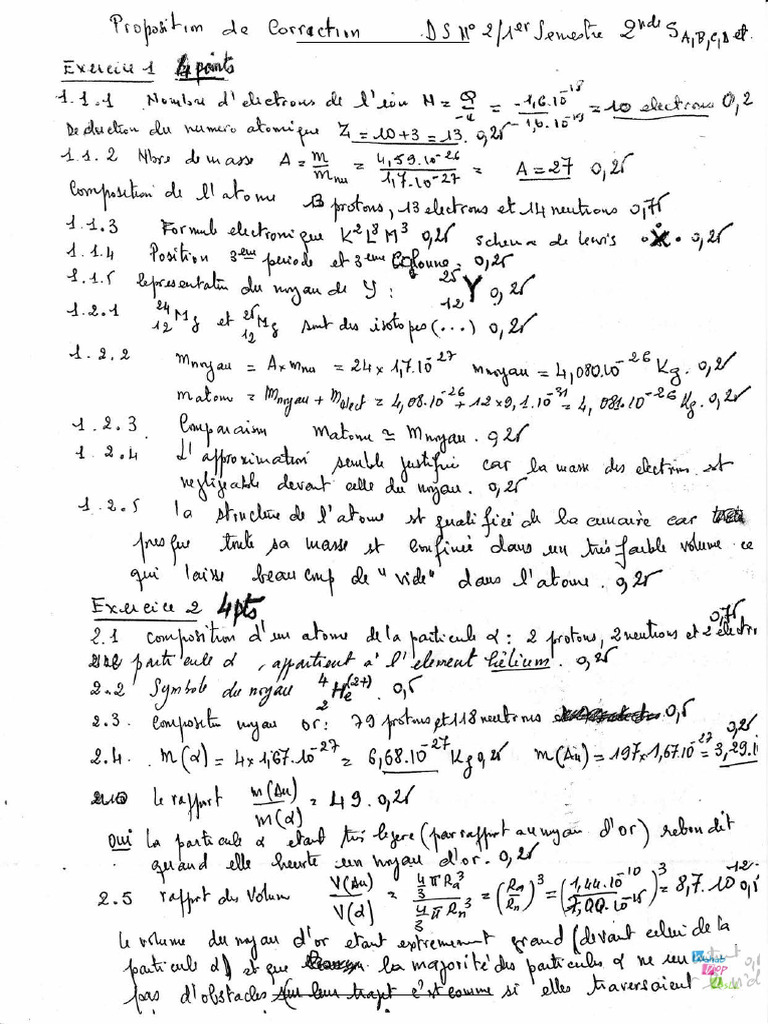 Proposition de Correction DS N° 2/1er Semestre 2nde S A,B,C,D et
Exercice 1 4 points
1.1.1 Nombre d'electrons de l'ion N = Q/-e = -1,6.10^-18/-1,6.10^-19 = 10 electrons 0,2
Deduction du numero atomique Z = 10+3 = 13. 0,25
1.1.2 Nbre de masse A = m/mnu = 4,59.10^-26/1,7.10^-27 = A = 27 0,25
Composition de l'atome 13 protons, 13 electrons et 14 neutrons 0,75
1.1.3 Formule electronique K²L⁸M³ 0,25 schema de lewis •X• 0,25
1.1.4 Position 3eme periode et 3eme Colonne. 0,25
1.1.5 Representation du noyau de Y : 25 12 Y 0,25
1.2.1 24 12 Mg et 25 12 Mg sont des isotopes (...) 0,25
1.2.2 mnoyau = A×mnu = 24×1,7.10^-27 mnoyau = 4,080.10^-26 Kg. 0,25
matome = mnoyau + melect = 4,08.10^-26 + 12×9,1.10^-31 = 4,081.10^-26 Kg. 0,25
1.2.3 Comparaison matome ≃ mnoyau. 0,25
1.2.4 L'approximation semble justifiée car la masse des electrons est
negligeable devant celle du noyau. 0,25
1.2.5 la structure de l'atome est qualifiée de lacunaire car
presque toute sa masse est confinée dans un très faible volume ce
qui laisse beaucoup de "vide" dans l'atome. 0,25
Exercice 2 4pts
2.1 composition d'un atome de la particule α : 2 protons, 2 neutrons et 2 electro 0,75
particule α, appartient à l'element hélium. 0,25
2.2 Symbole du noyau 4 2 He (2+) . 0,5
2.3. Composition noyau or : 79 protons et 118 neutrons 0,5
2.4. m(α) = 4×1,67.10^-27 = 6,68.10^-27 Kg 0,25 m(Au) = 197×1,67.10^-27 = 3,29.1 0,25
le rapport m(Au)/m(α) = 49. 0,25
Oui la particule α etant très legere (par rapport au noyau d'or) rebondit
quand elle heurte un noyau d'or. 0,25
2.5 rapport des Volum V(Au)/V(α) = 4/3 π Ra³ / 4/3 π Rn³ = (Ra/Rn)³ = (1,44.10^-10/7,00.10^-15)³ = 8,7.10^12
le volume du noyau d'or etant extremement grand (devant celui de la
particule α) et que la majorité des particules α ne
pas d'obstacles sur leur trajet c'est comme si elles traversaient